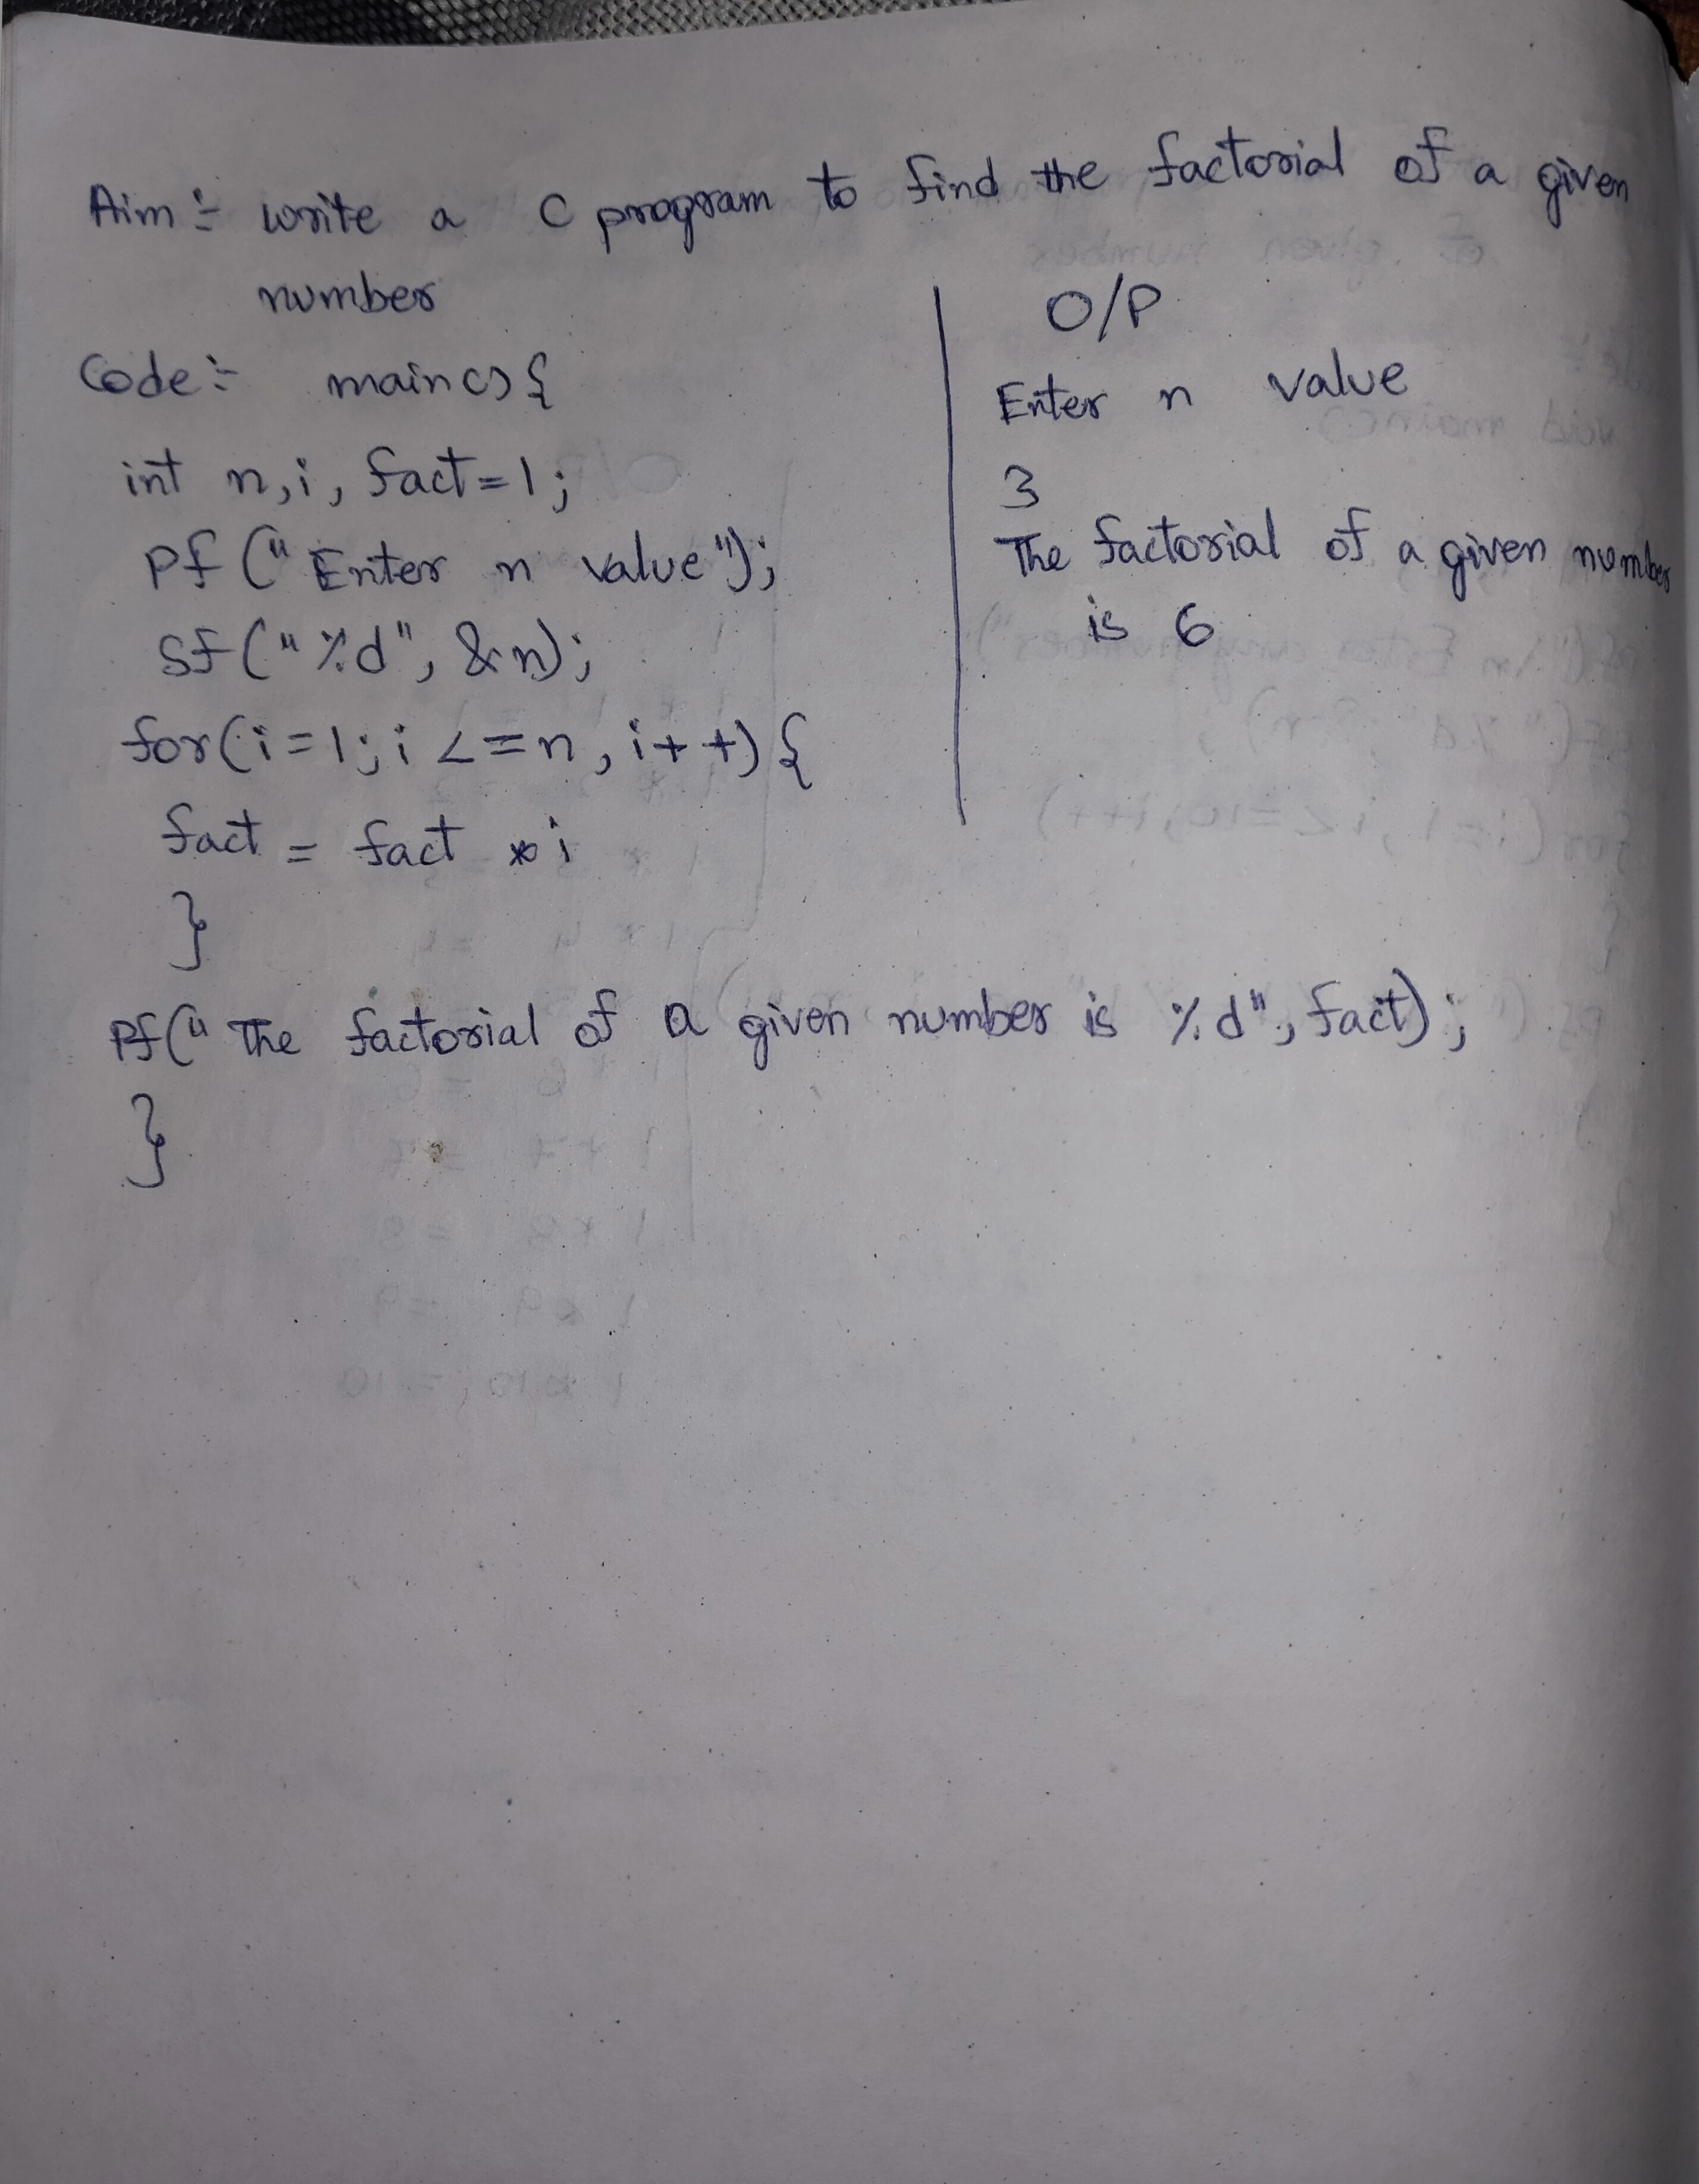 Aim :- write a C program to find the factorial of a given
number
Code :- main() {
int n, i, fact = 1;
Pf ("Enter n value");
Sf ("%d", &n);
for (i = 1; i <= n, i++) {
fact = fact * i
}
Pf ("The factorial of a given number is %d", fact);
}
O/P
Enter n value
3
The factorial of a given number
is 6